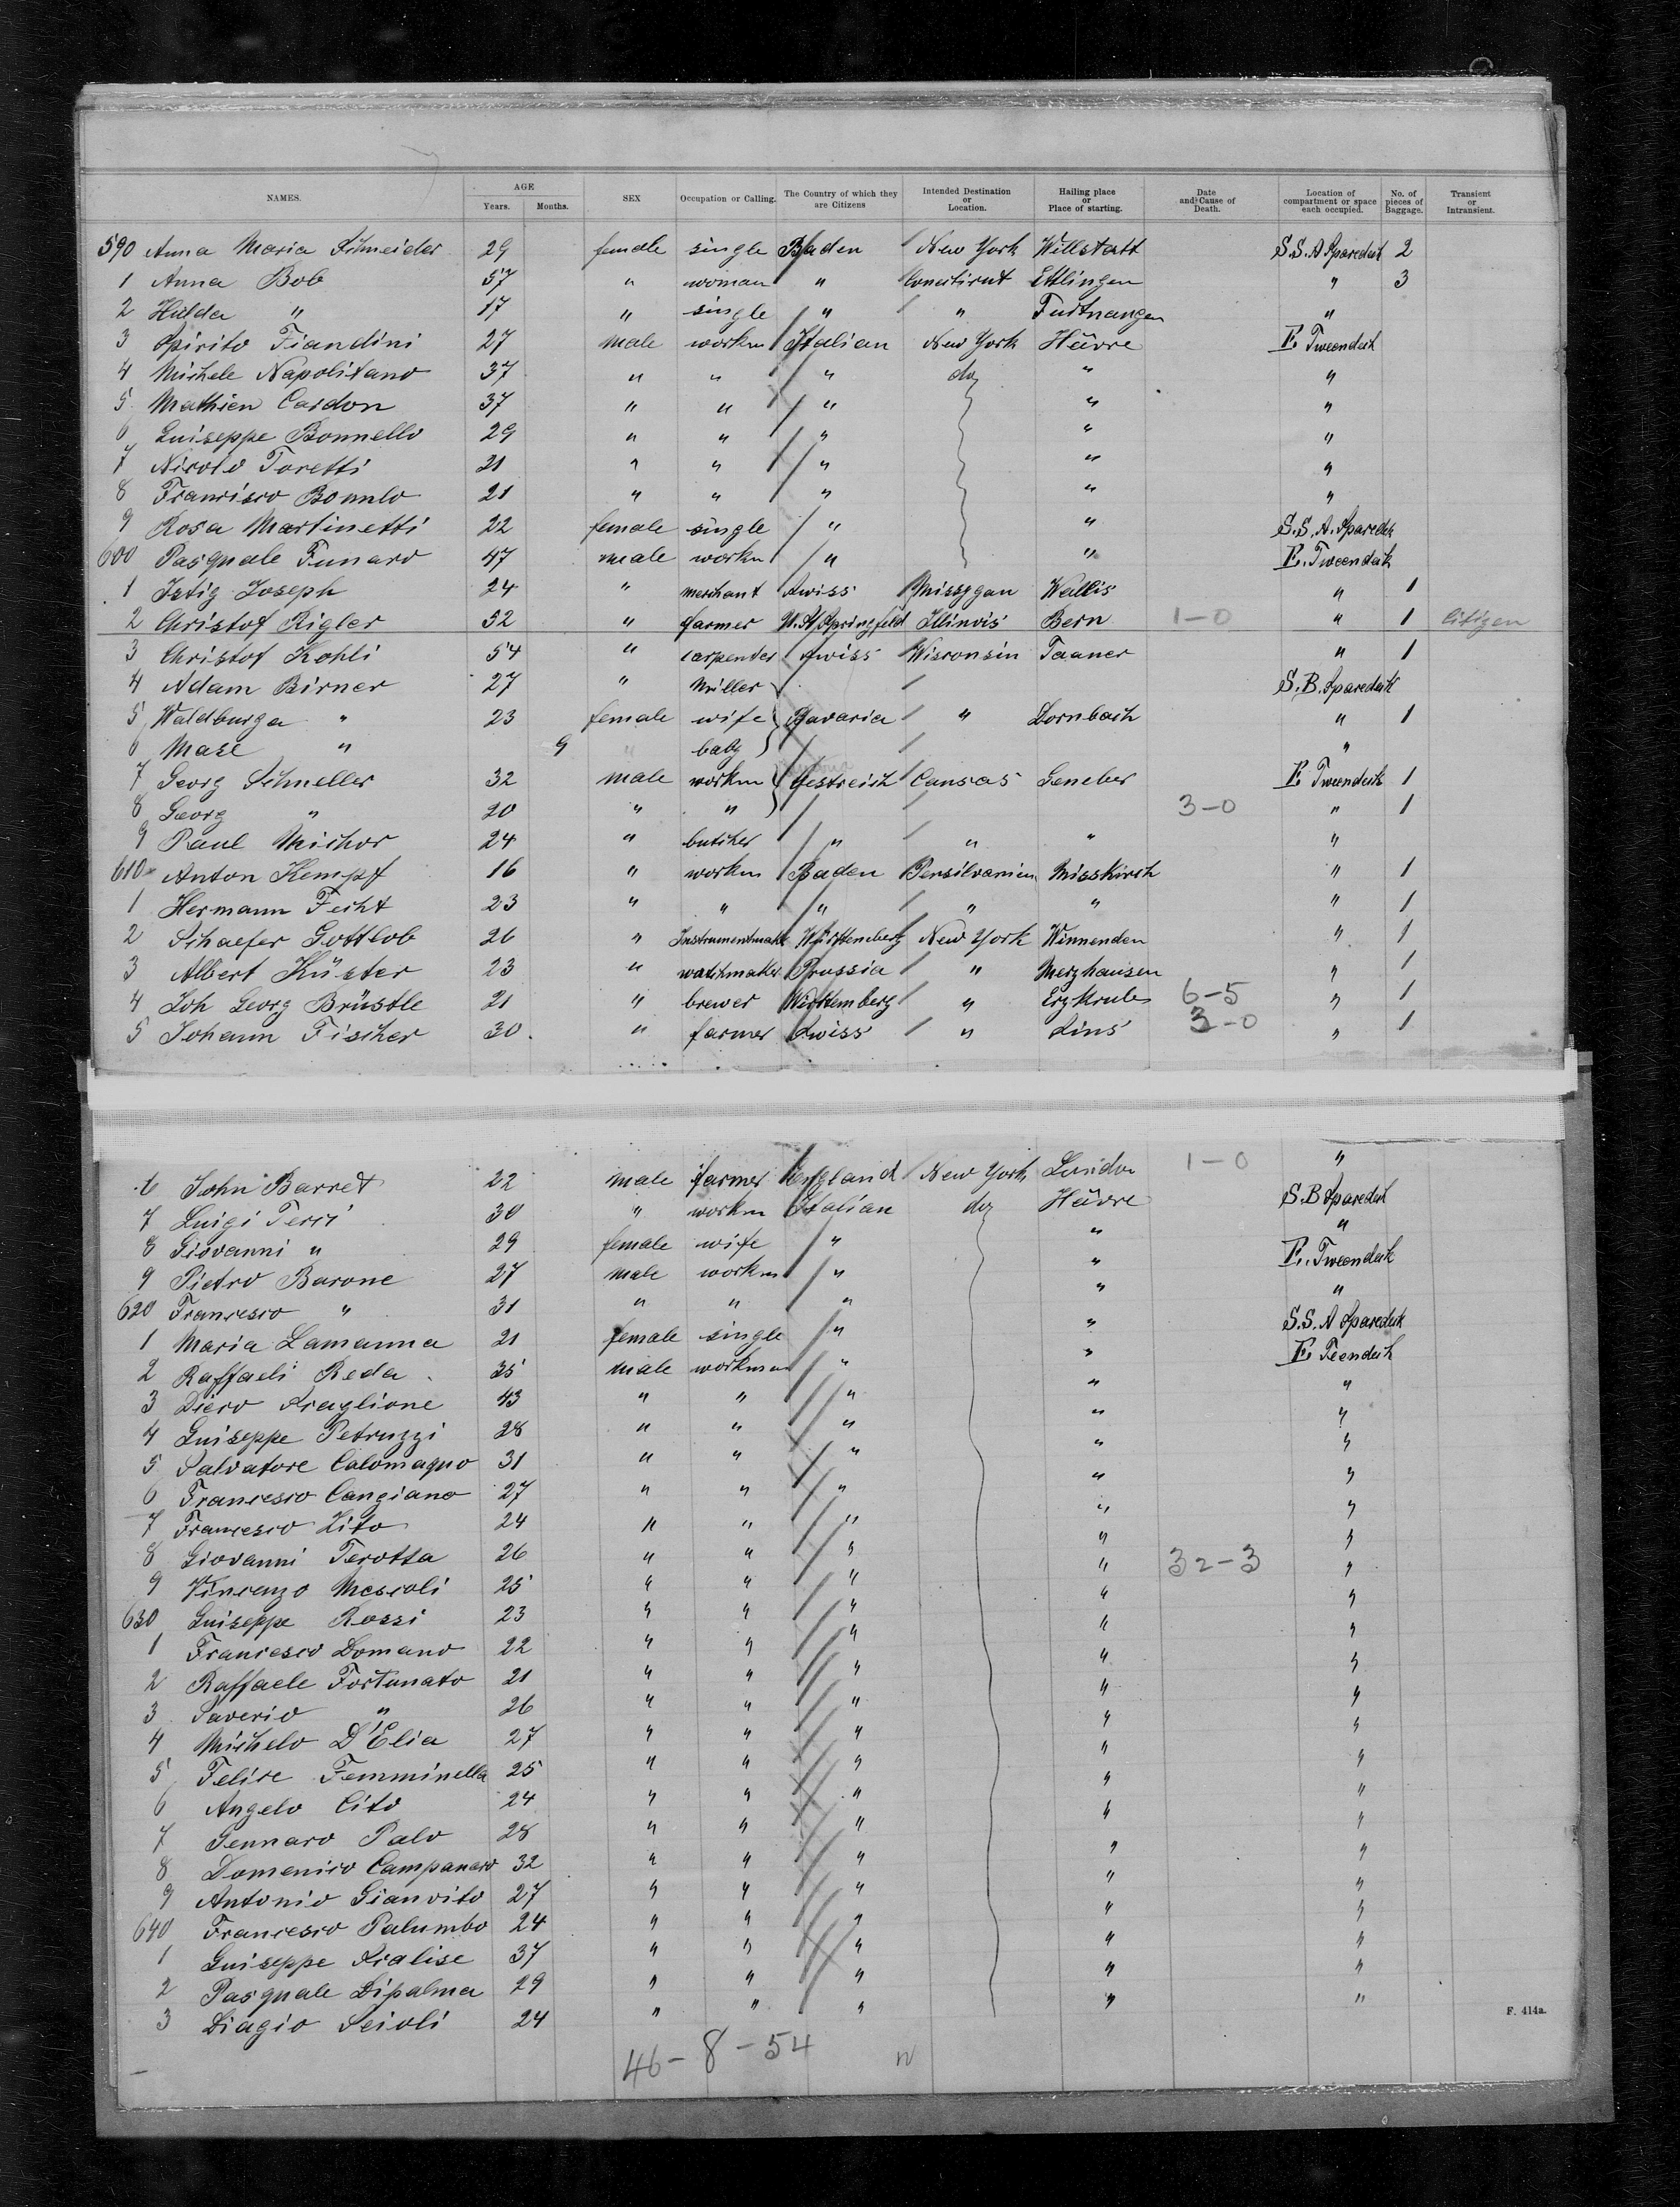 NAMES. AGE Years. Months. SEX Occupation or Calling. The Country of which they are Citizens Intended Destination or Location. Hailing place or Place of starting. Date and Cause of Death. Location of compartment or space each occupied. No. of pieces of Baggage. Transient or Intransient.
590 Anna Maria Schneider 29 female single Baden New York Willstatt S.S.A Sparedeck 2
1 Anna Bob 57 " woman " Conectirut Ettlingen " 3
2 Hulda " 17 " single " " Furtnangen "
3 Spirito Fiandini 27 male workm Italian New York Hâvre E. Tweendeck
4 Michele Napolitano 37 " " " do " "
5 Mathien Cardon 37 " " " " "
6 Guiseppe Bonnello 29 " " " " "
7 Nicolo Toretti 21 " " " " "
8 Francisco Bonnlo 21 " " " " "
9 Rosa Martinetti 22 female single " " S.S.A. Sparedeck
600 Pasquale Funaro 47 male workm " " E. Tweendeck
1 Istig Joseph 24 " merchant Swiss Missggan Wallis " 1
2 Christof Rigler 52 " farmer Springfeld Illinois Bern 1-0 " 1 Citizen
3 Christof Kohli 54 " carpenter Swiss Wisconsin Taaner " 1
4 Adam Birner 27 " Miller S.B. Sparedeck
5 Waldburga " 23 female wife Bavaria " Dornbach " 1
6 Maxe " 9 " baby "
7 Georg Schneller 32 male workm Oestreich Cansas Geneber E Tweendeck 1
8 Georg " 20 " " 3-0 " 1
9 Paul Michor 24 " butcher " " " "
610 Anton Kempf 16 " workm Baden Pensilvanien Misskirch " 1
1 Hermann Fecht 23 " " " " " " 1
2 Schaefer Gottlob 26 " Instrumentmaker Württemberg New York Winnenden " 1
3 Albert Küster 23 " watchmaker Prussia " Merzhausen " 1
4 Joh Georg Brüstle 21 " brewer Württemberg " 6-5 " 1
5 Johann Fischer 30. " farmer Swiss " Lins 3-0 " 1
6 John Barret 22 male farmer England New York London 1-0 "
7 Luigi Terri 30 " workm Italian do Hâvre S.B Sparedeck
8 Giovanni " 29 female wife " " "
9 Pietro Barone 27 male workm " " E. Tweendeck
620 Francesco " 31 " " " " "
1 Maria Lamanna 21 female single " " S.S.A Sparedeck
2 Raffaeli Reda 35 male workman " " E Teendeck
3 Diero Scaglione 43 " " " " "
4 Guiseppe Petruzzi 28 " " " " "
5 Salvatore Calomagno 31 " " " " "
6 Francesco Cangiano 27 " " " " "
7 Francesco Lito 24 " " " " "
8 Giovanni Terotta 26 " " " " "
9 Vincenzo Mescoli 25 " " " " 32-3 "
630 Guiseppe Rossi 23 " " " " "
1 Francesco Domano 22 " " " " "
2 Raffaele Fortunato 21 " " " " "
3 Saverio " 26 " " " " "
4 Michelo D'Elia 27 " " " " "
5 Felice Femminella 25 " " " " "
6 Angelo Cito 24 " " " " "
7 Gennaro Palo 28 " " " " "
8 Domenico Campanaro 32 " " " " "
9 Antonio Gianvito 27 " " " " "
640 Francesco Palumbo 24 " " " " "
1 Guiseppe Scalise 37 " " " " "
2 Pasquale Dipalma 29 " " " " "
3 Biagio Scioli 24 " " " " "
F. 414a.
46-8-54